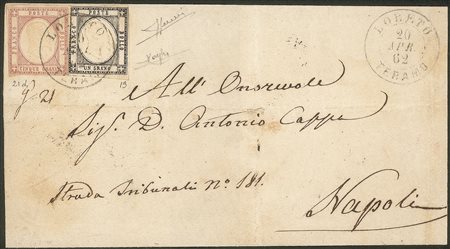 FRANCO BOLLO CINQUE GRANA
FRANCO BOLLO UN GRANO
LORETO
LORETO
20
APR.
62
TERAMO
All' Onorevole
Sig. D. Antonio Cappa
Strada Tribunali N° 181.
Napoli